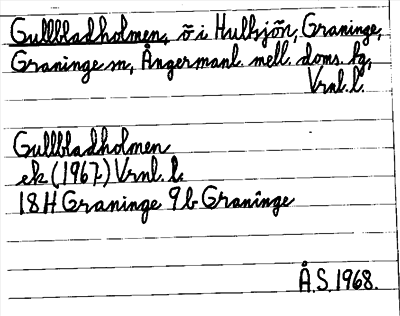 Gullbladholmen, ö i Hulbsjön, Graninge,
Graninge sn, Ångermanl. mell. doms. bg,
Vrnl. l.
Gullbladholmen
ek (1967) Vrnl. l.
18H Graninge 9b Graninge
Å.S. 1968.